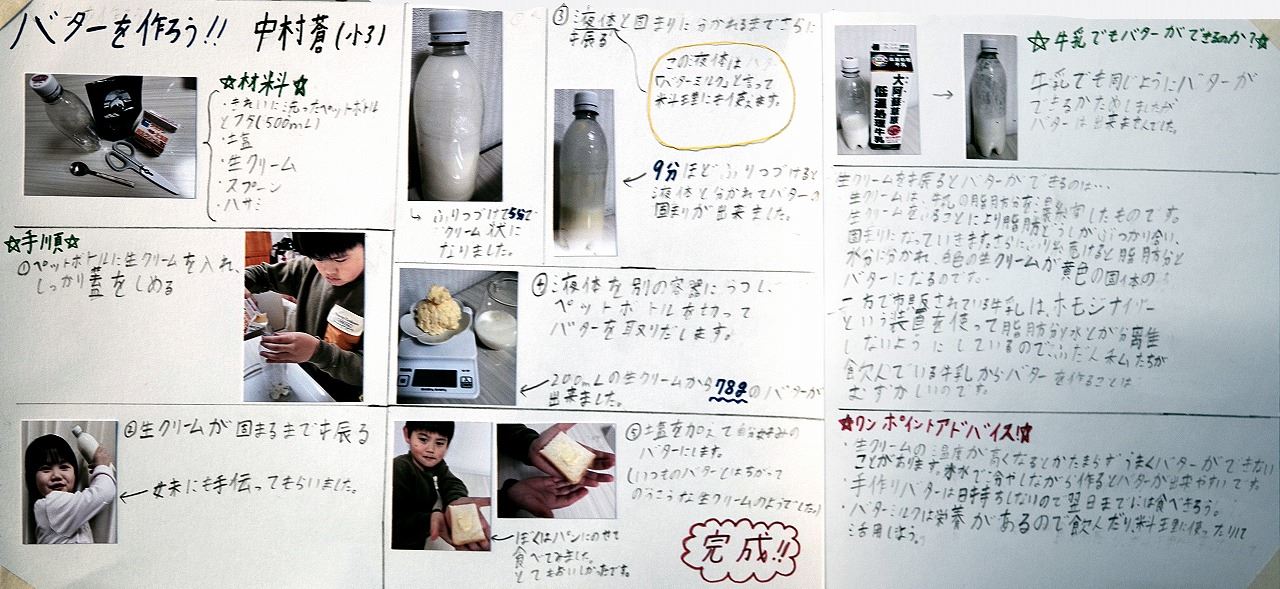 バターを作ろう!! 中村蒼(小3)
☆材料☆
・きれいに洗ったペットボトル
とフタ(500mL)
・塩
・生クリーム
・スプーン
・ハサミ
☆手順☆
①ペットボトルに生クリームを入れ、
しっかり蓋をしめる
②生クリームが固まるまで振る
妹にも手伝ってもらいました。
ふりつづけて5分で
クリーム状に
なりました。
③液体と固まりに分かれるまでさらに
振る
この液体は
「バターミルク」と言って
料理にも使えます。
9分ほどふりつづけると
液体と分かれてバターの
固まりが出来ました。
④液体を別の容器にうつし、
ペットボトルを切って
バターを取りだします。
200mLの生クリームから78gのバターが
出来ました。
⑤塩を加えて自分好みの
バターにします。
(いつものバターとはちがって
のうこうな生クリームのようでした。)
ぼくはパンにのせて
食べてみました。
とてもおいしかったです。
完成!!
☆牛乳でもバターができるのか?☆
大阿蘇草原
低温処理牛乳
牛乳でも同じようにバターが
できるかためしましたが
バターは出来ませんでした。
生クリームを振るとバターができるのは…
生クリームは、牛乳の脂肪分を濃縮したものです。
生クリームをふることにより脂肪どうしがぶつかり合い、
固まりになっていきます。さらにふり続けると脂肪分と
水分に分かれ、白色の生クリームが黄色の固体の
バターになるのです。
一方で市販されている牛乳は、ホモジナイザー
という装置を使って脂肪分と水とが分離
しないようにしているので、ふだん私たちが
食飲んでいる牛乳からバターを作ることは
むずかしいのです。
☆ワンポイントアドバイス!☆
・生クリームの温度が高くなるとかたまらずうまくバターができない
ことがあります。氷水で冷やしながら作るとバターが出来やすいです。
・手作りバターは日持ちしないので翌日までには食べきろう。
・バターミルクは栄養があるので飲んだり、料理に使ったりして
活用しよう。